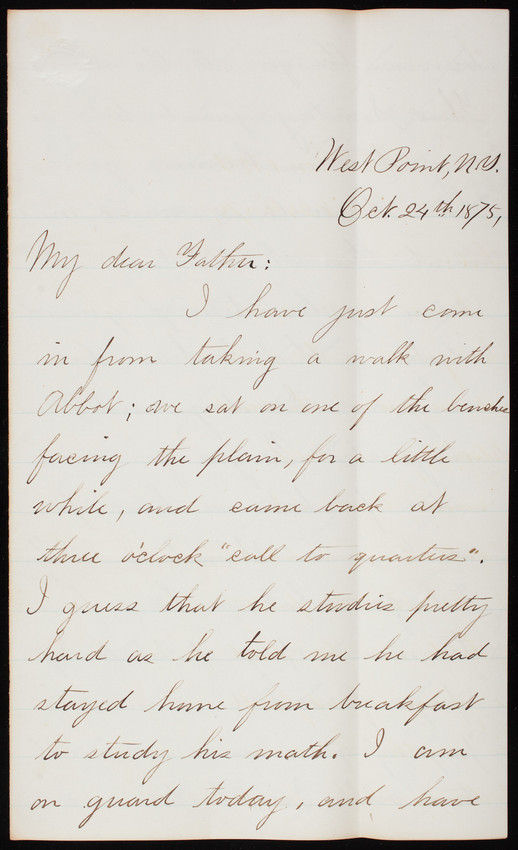 West Point, N.Y.
Oct. 24th 1875,
My dear Father:
I have just come
in from taking a walk with
Abbot; we sat on one of the benches
facing the plain, for a little
while, and came back at
three o'clock "call to quarters".
I guess that he studies pretty
hard as he told me he had
stayed home from breakfast
to study his math. I am
on guard today, and have